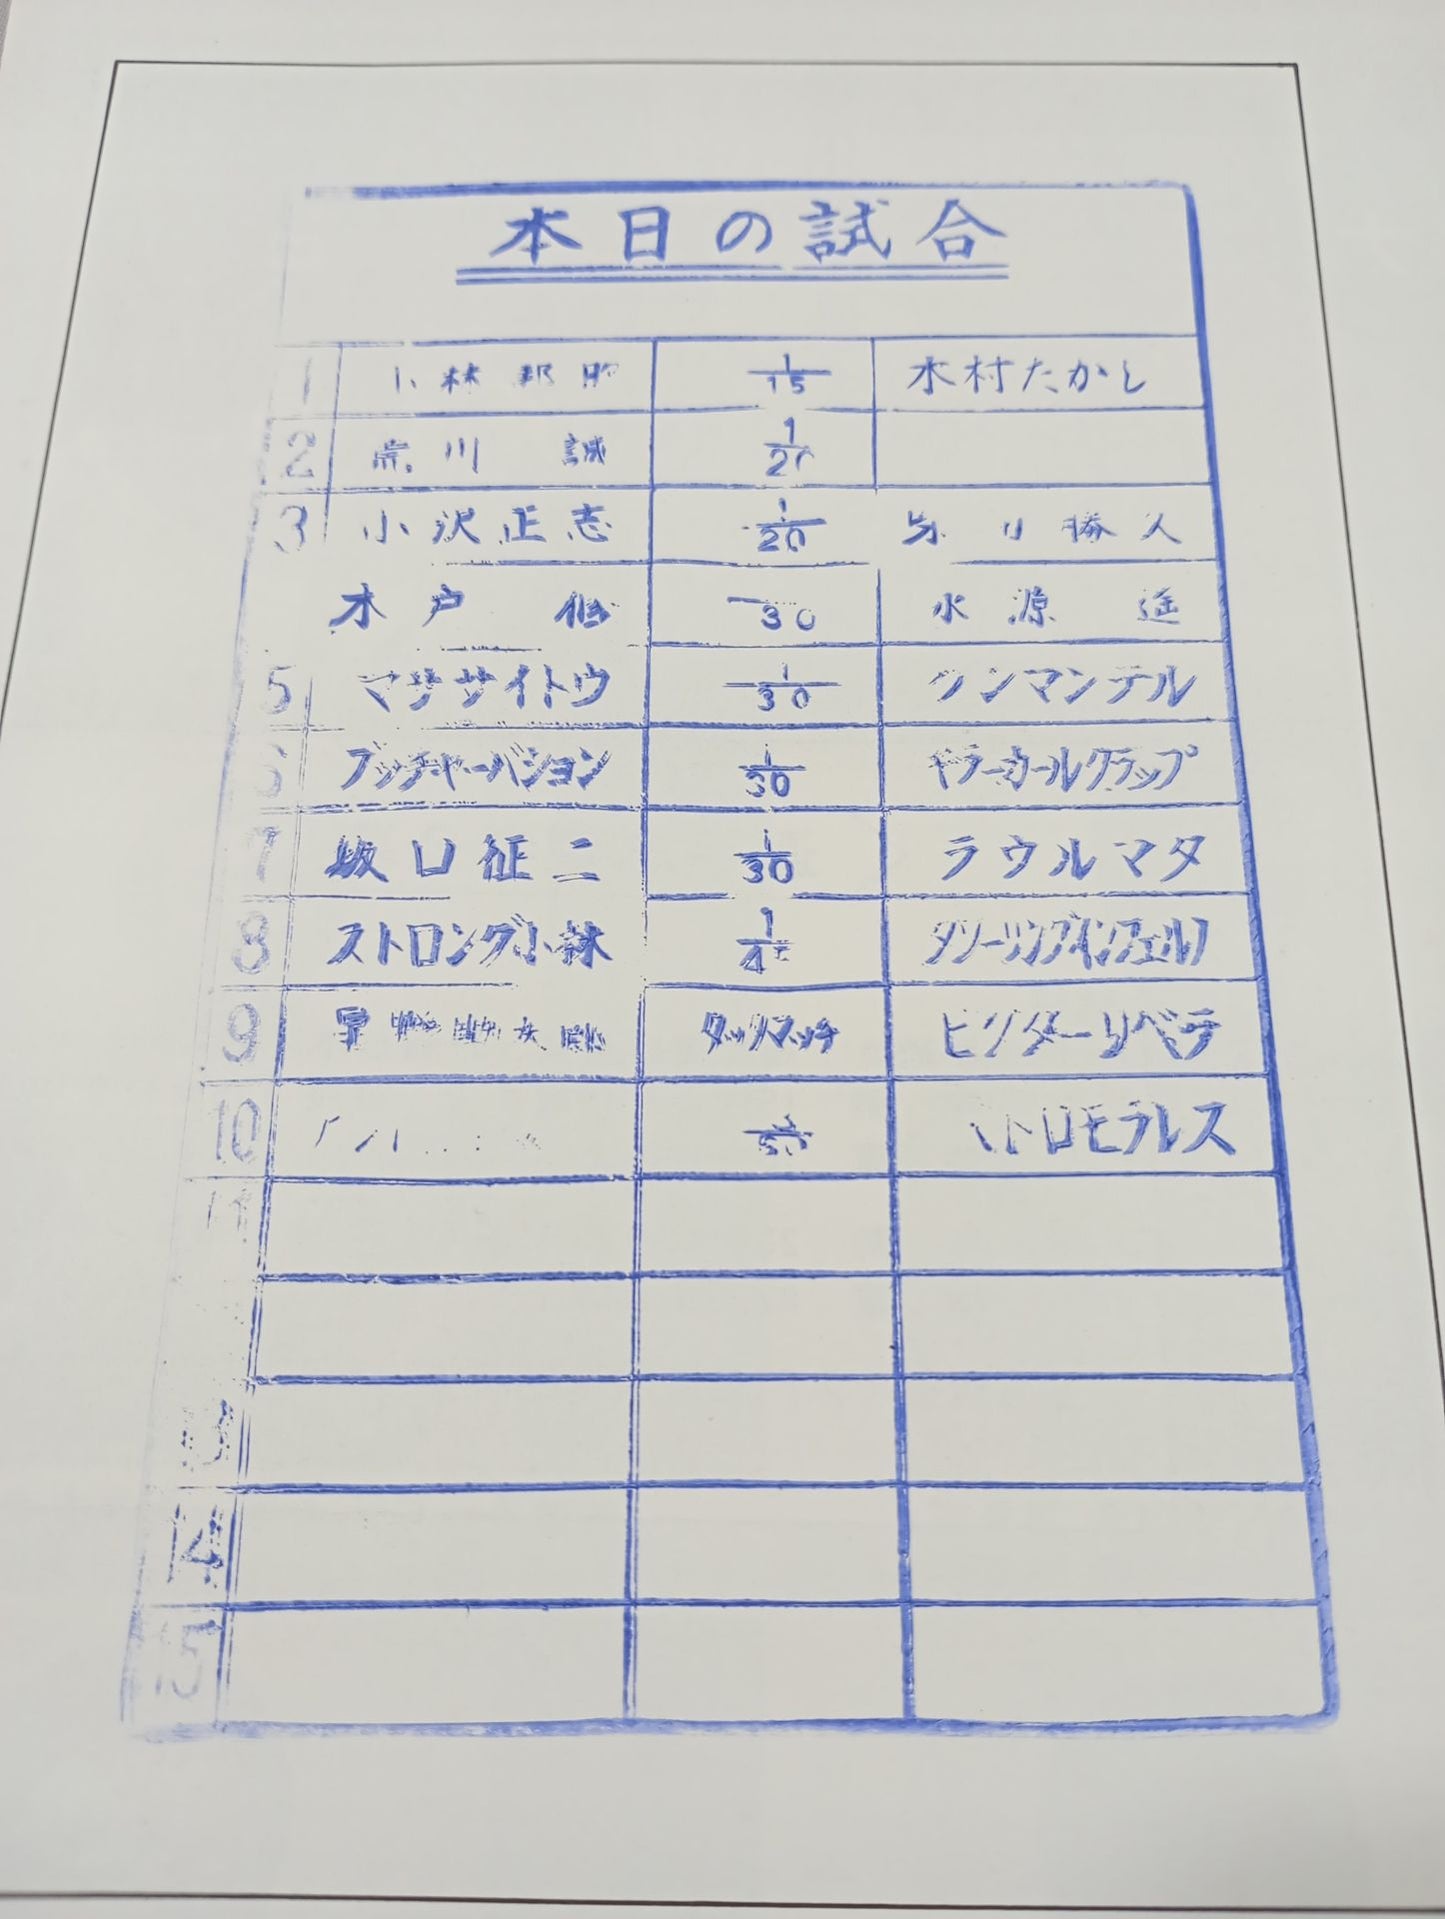 本日の試合
1 小林邦昭 1/15 木村たかし
2 荒川 誠 1/20
3 小沢正志 1/20 勝
木戸 修 30
5 マササイトウ 1/30 マンテル
6 ブッチャーバション 1/30 キラーカールクラップ
7 坂口征二 1/30 ラウルマタ
8 ストロング小林 1/45
9 タッグマッチ ビクターリベラ
10 ペドロモラレス
11
13
14
15